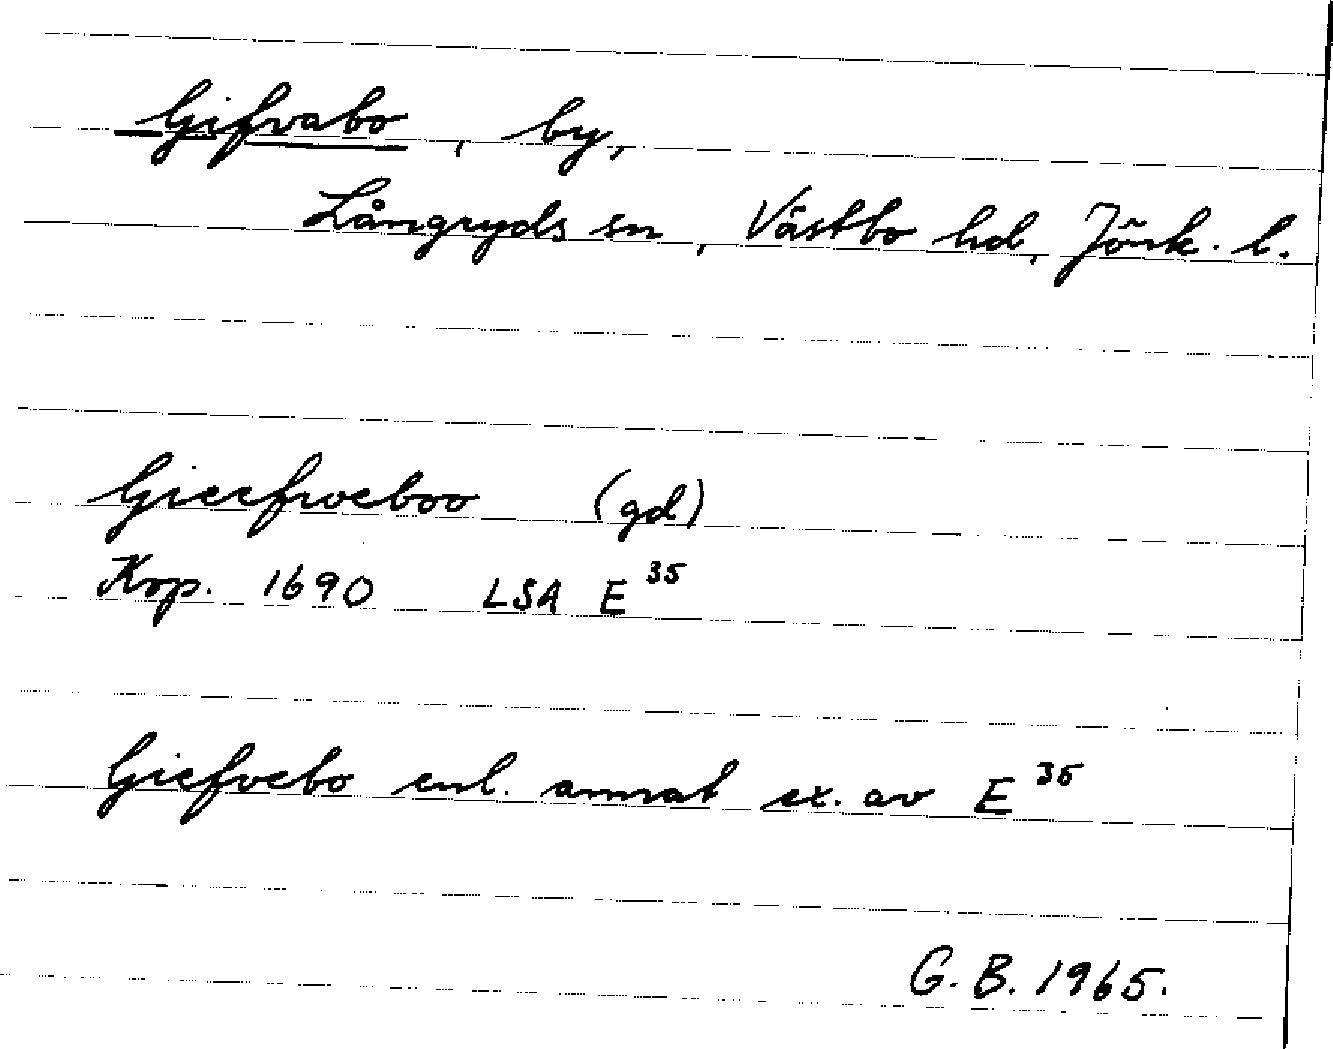 Gifvabo, by,
Långryds sn, Västbo hd, Jönk. l.
Gieefweboo (gd)
Kop. 1690 LSA E 35
Giefvebo enl. annat ex. av E 35
G. B. 1965.